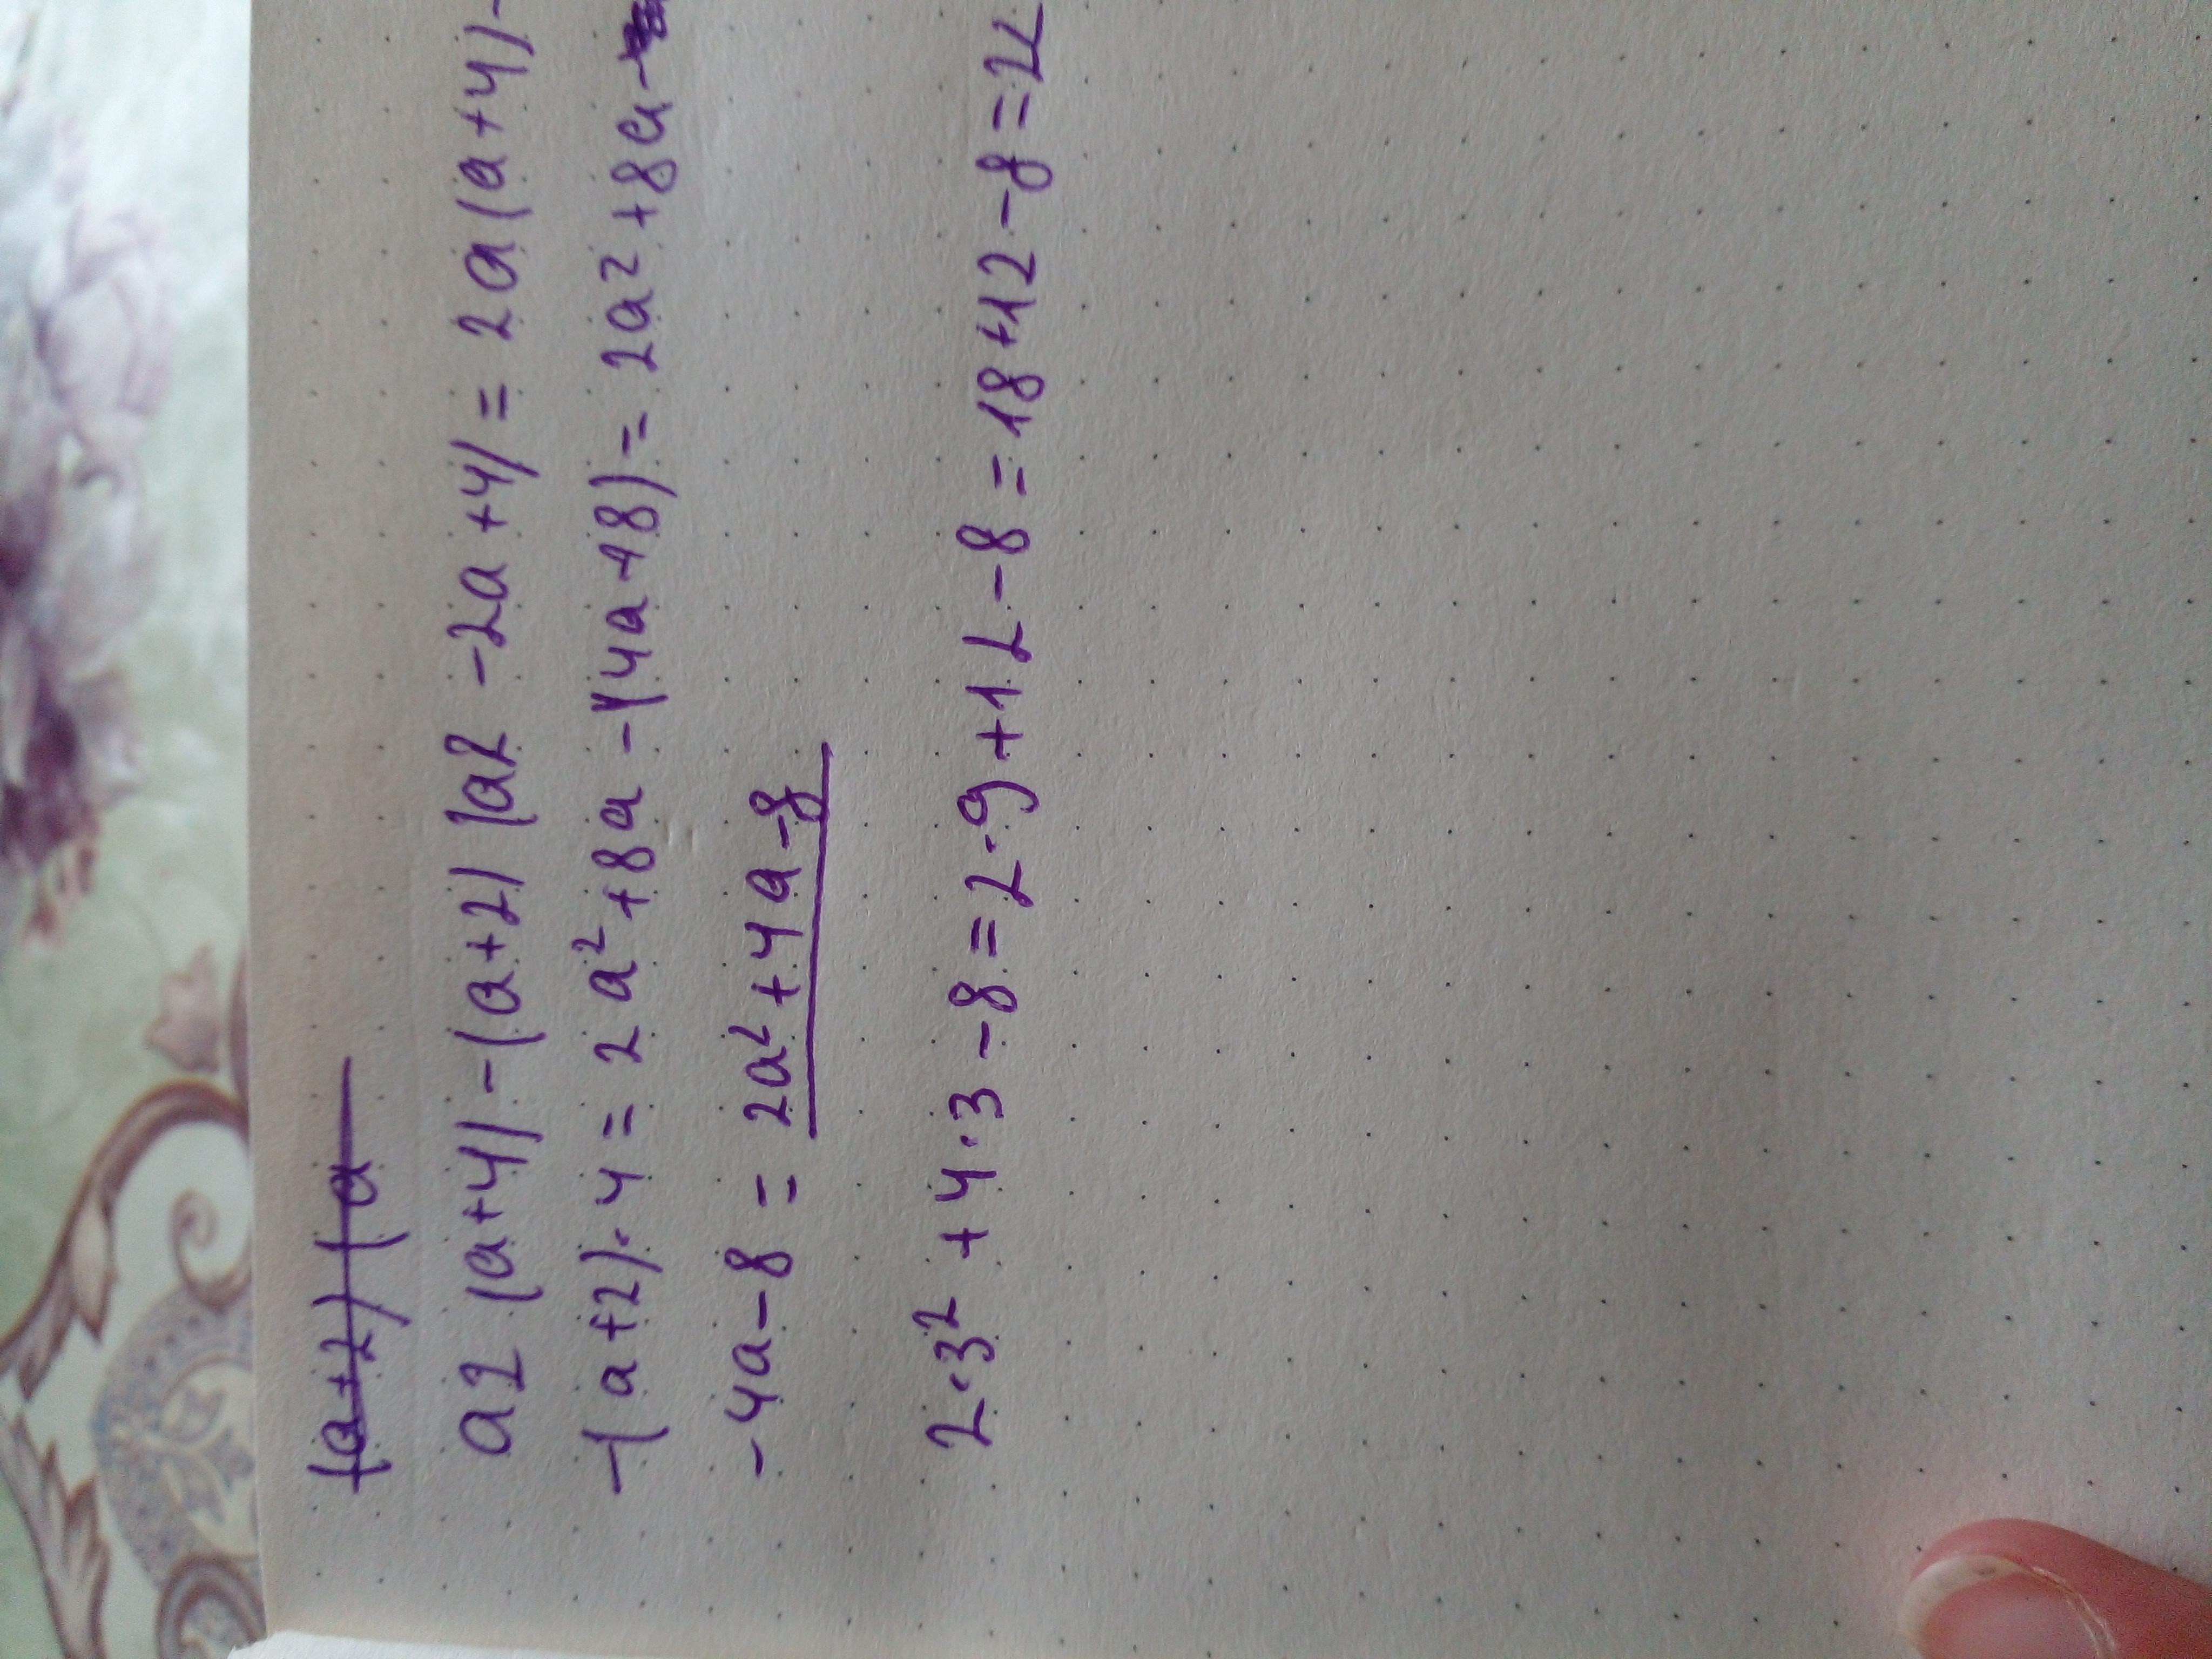 (a+2)(a
a2(a+4)-(a+2)(a2-2a+4)=2a(a+4)-
-(a+2)·4=2a²+8a-(4a+8)=2a²+8a-
-4a-8=2a²+4a-8
2·3²+4·3-8=2·9+12-8=18+12-8=22